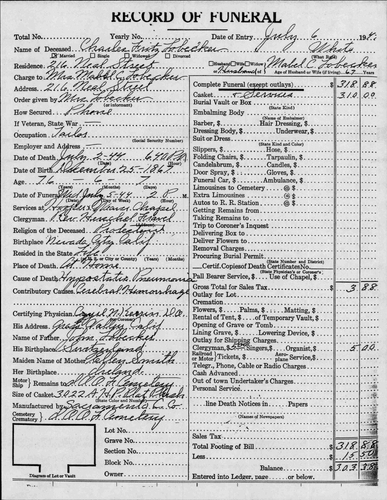 RECORD OF FUNERAL
Total No. Yearly No. Date of Entry July 6, 194
Name of Deceased Charles Fritz Lobecker White
Married Single Widowed Divorced
Residence 216 Neal Street
Husband of Mabel C. Lobecker
Charge to Mrs. Mabel C. Lobecker Age of Husband or Wife (if living) 67 Years
Address 216 Neal Street
Order given by Mrs. Lobecker
How Secured Phone
If Veteran, State War
Occupation
(Social Security Number)
Employer and Address
Date of Death July 2-44 6:40 P.M.
Date of Birth December 25-1867
Age 76 6 7
Date of Funeral Wed July 5-44 2 P.M.
Services at Chapel
Clergyman Rev. Herschel
Religion of the Deceased Protestant
Birthplace Nevada City, Calif
Resided in the State Life
(U. S. or City or County) (Years, Months)
Place of Death At Home
Cause of Death Hypostatic Pneumonia
Contributory Causes Cerebral Hemorrhage
Certifying Physician
His Address Grass Valley, Calif
Name of Father John Lobecker
His Birthplace Switzerland
Maiden Name of Mother Ellen Smith
Her Birthplace Ireland
Motor Ship Remains to Cemetery
Size of Casket
Manufactured by Sacramento C. Co.
Cemetery Crematory Cemetery
Lot No.
Grave No.
Section No.
Block No.
Owner
Diagram of Lot or Vault
Complete Funeral (except outlays) $ 318 88
Casket & Services $ 310 00
Burial Vault or Box
(State Kind)
Embalming Body
(State Kind)
Barber, $ Hair Dressing, $
Dressing Body, $ Underwear, $
Suit or Dress
(State Kind)
Slippers, $ Hose, $
Folding Chairs, $ Tarpaulin, $
Candelabrum, $ Candles, $
Door Spray, $ Gloves, $
Funeral Car, $ Ambulance, $
Limousines to Cemetery @$
Extra Limousines @$
Autos to R. R. Station @$
Getting Remains from
Taking Remains to
Trip to Coroner's Inquest
Delivering Box to
Deliver Flowers to
Removal Charges
Procuring Burial Permit
(State Number and District)
Certif. Copies of Death Certificates
(State Physician's or Coroner's)
Pall Bearer Service, $ Use of Chapel, $
Gross Total for Sales Tax $ 3 88
Outlay for Lot
Cremation
Flowers, $ Palms, $ Matting, $
Rental of Tent, $ of Temporary Vault, $
Opening of Grave or Tomb
Lining Grave, $ Lowering Device, $
Outlay for Shipping Charges
Clergyman, $ Singers, $ Organist, $ 5 00
Railroad or Motor Tickets, $ Aeroplane Service, $
Telegr., Phone, Cable or Radio Charges
Cash Advanced
Out of town Undertaker's Charges
Personal Service
line Death Notices in Papers
(Names of Newspapers)
Sales Tax
Total Footing of Bill $ 318 88
Less 15 50
Balance $ 303 38
Entered into Ledger, page or below